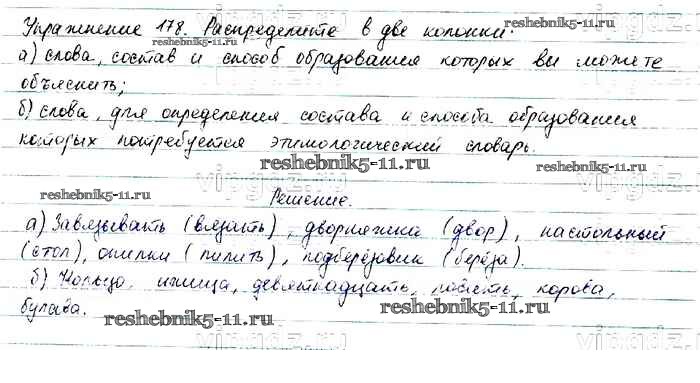 Упражнение 178. Распределите в две колонки:
а) слова, состав и способ образования которых вы можете
объяснить;
б) слова, для определения состава и способа образования
которых потребуется этимологический словарь.
reshebnik5-11.ru
reshebnik5-11.ru
reshebnik5-11.ru
Решение.
reshebnik5-11.ru
а) Завязывать (вязать), дворняжка (двор), настольный
(стол), опилки (пилить), подберёзовик (берёза).
б) Кольцо, ижица, девятнадцать, корова,
булава.
reshebnik5-11.ru
reshebnik5-11.ru